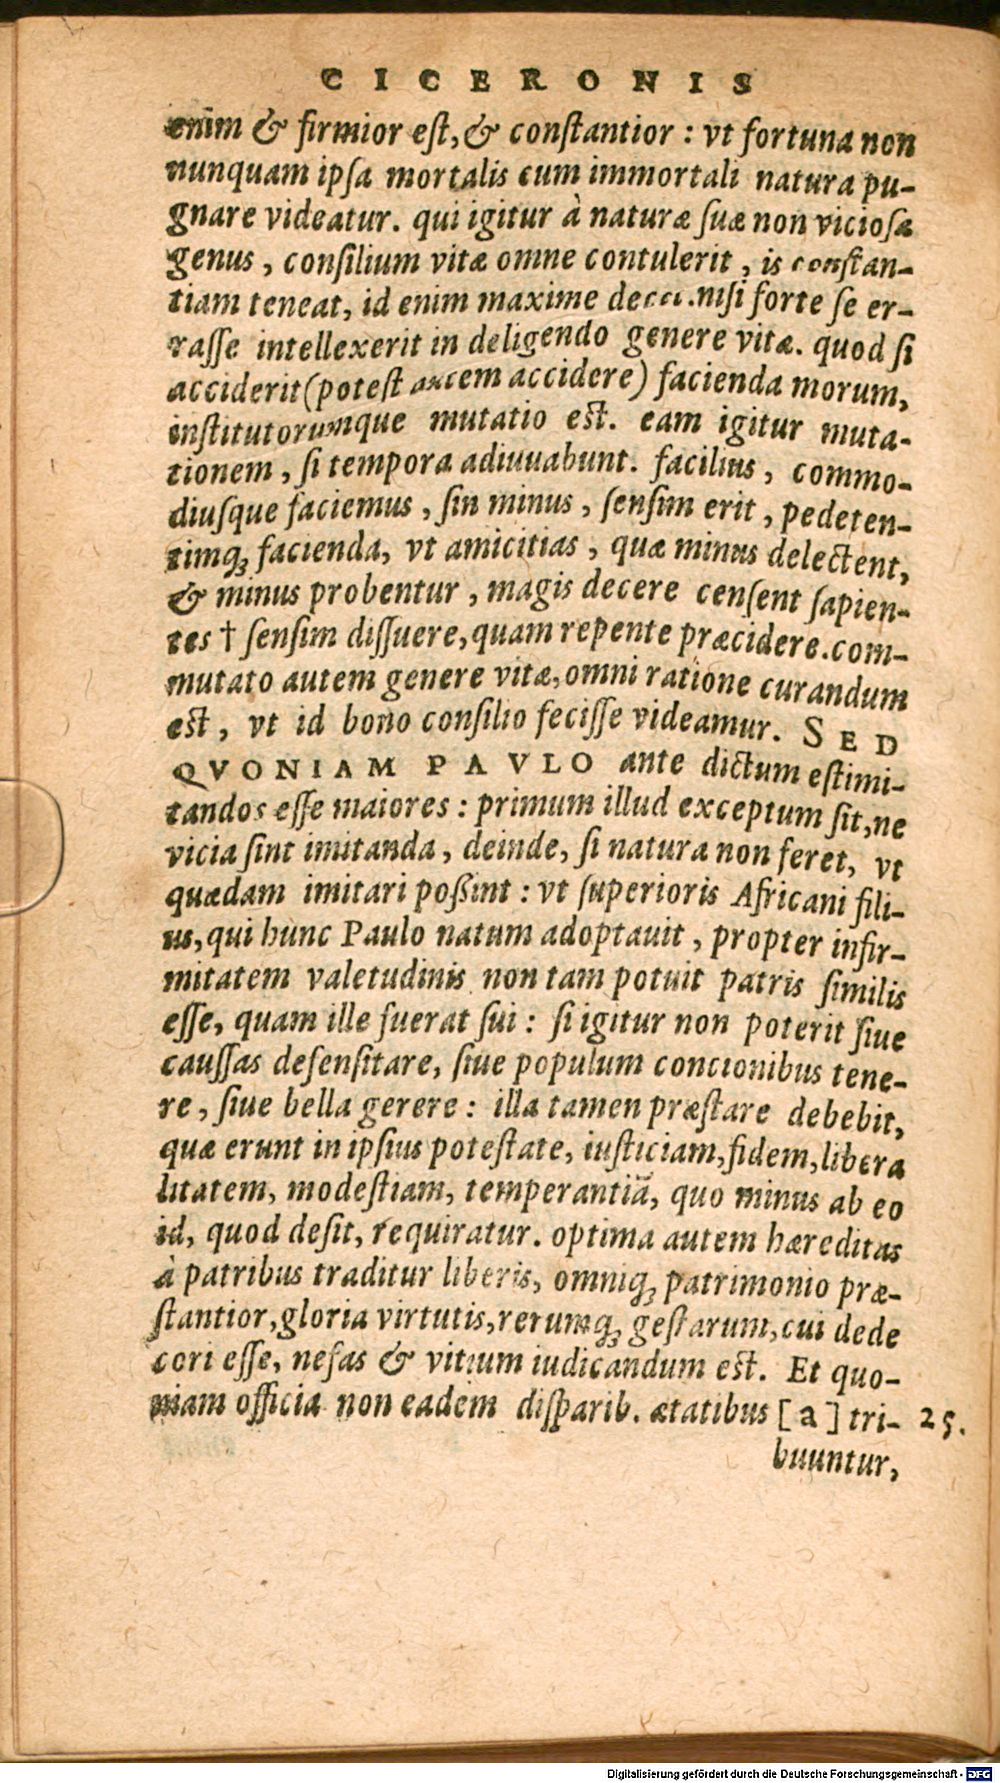 CICERONIS
enim & firmior est, & constantior : vt fortuna non
nunquam ipsa mortalis cum immortali natura pu-
gnare videatur. qui igitur à naturæ suæ non viciosæ
genus, consilium vitæ omne contulerit, is constan-
tiam teneat, id enim maxime decet. nisi forte se er-
rasse intellexerit in deligendo genere vitæ. quod si
acciderit (potest autem accidere) facienda morum,
institutorumque mutatio est. eam igitur muta-
tionem, si tempora adiuuabunt. facilius, commo-
diusque faciemus, sin minus, sensim erit, pedeten-
timq; facienda, vt amicitias, quæ minus delectent,
& minus probentur, magis decere censent sapien-
tes † sensim dissuere, quam repente præcidere. com-
mutato autem genere vitæ, omni ratione curandum
est, vt id bono consilio fecisse videamur. SED
QVONIAM PAVLO ante dictum est imi-
tandos esse maiores : primum illud exceptum sit, ne
vicia sint imitanda, deinde, si natura non feret, vt
quædam imitari possint : vt superioris Africani fili-
us, qui hunc Paulo natum adoptauit, propter infir-
mitatem valetudinis non tam potuit patris similis
esse, quam ille fuerat sui : si igitur non poterit siue
caussas defensitare, siue populum concionibus tene-
re, siue bella gerere : illa tamen præstare debebit,
quæ erunt in ipsius potestate, iusticiam, fidem, libera
litatem, modestiam, temperantiã, quo minus ab eo
id, quod desit, requiratur. optima autem hæreditas
à patribus traditur liberis, omniq; patrimonio præ-
stantior, gloria virtutis, rerumq; gestarum, cui dede
cori esse, nefas & vitium iudicandum est. Et quo-
niam officia non eadem disparib. ætatibus [a] tri- 25.
buuntur,
Digitalisierung gefördert durch die Deutsche Forschungsgemeinschaft - DFG